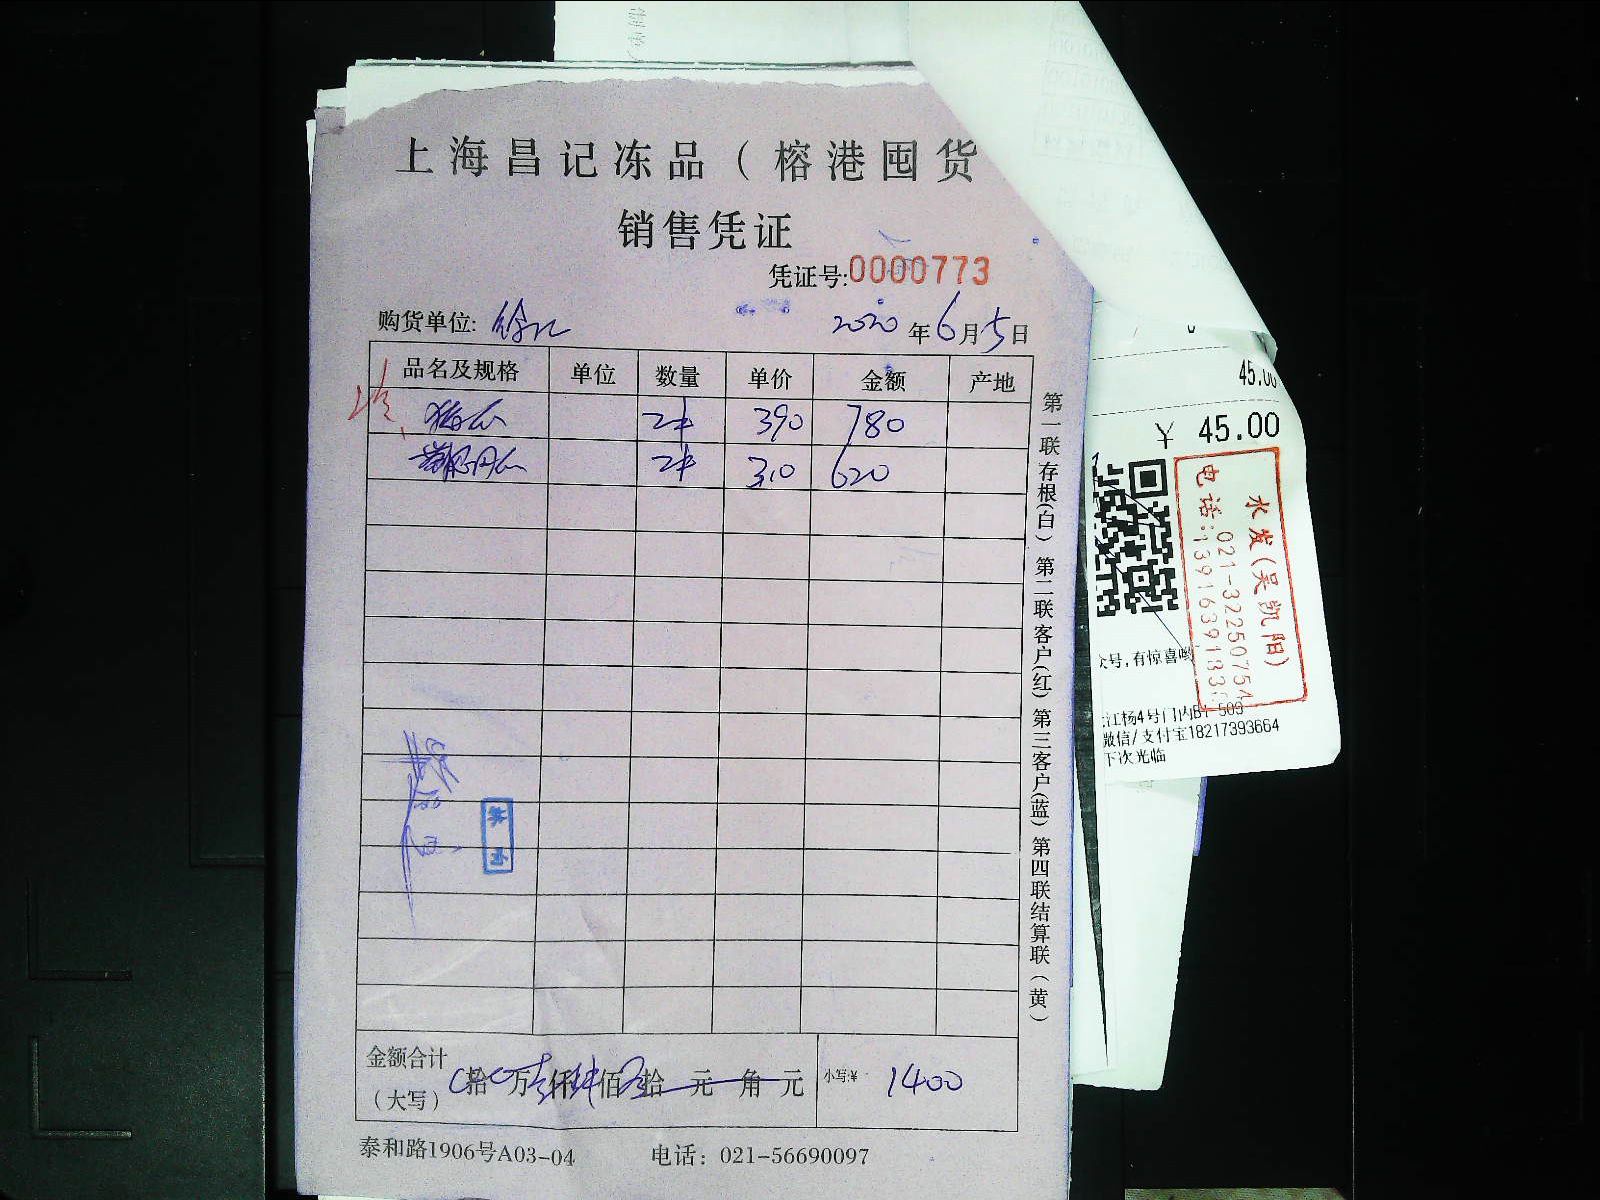 上海昌记冻品（榕港囤货
销售凭证
凭证号:0000773
购货单位:
2020年6月5日
品名及规格 单位 数量 单价 金额 产地
2件 390 780
2件 310 620
金额合计
（大写）
拾 万 仟 佰 拾 元 角 元
小写:¥ 1400
泰和路1906号A03-04 电话：021-56690097
第一联存根(白) 第二联客户(红) 第三客户(蓝) 第四联结算联（黄）
45.00
¥ 45.00
水发(吴凯阳)
021-32250754
电话:
众号,有惊喜哟
江杨4号门内B1-509
微信/支付宝18217393664
下次光临